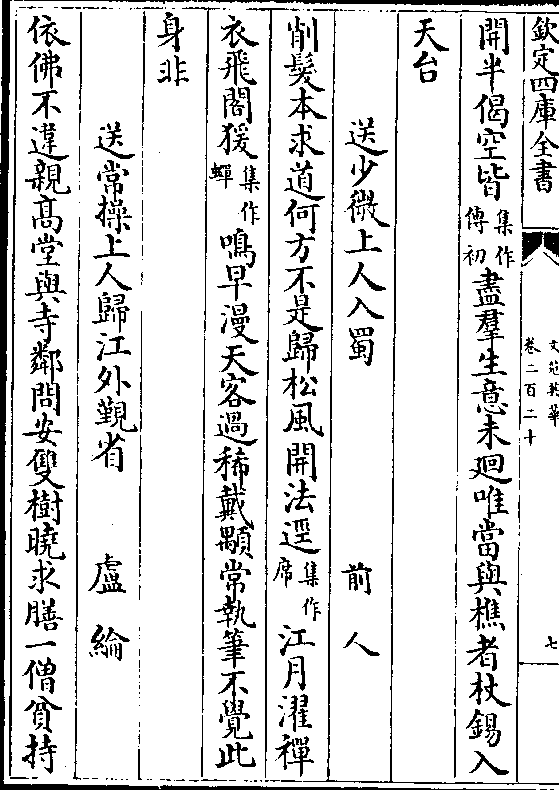 欽定四庫全書
文苑英華
卷二百二十
七
開半偈空皆集作傳初盡羣生意未廻唯當與樵者杖錫入
天台
送少微上人入蜀 前人
削髮本求道何方不是歸松風開法逕集作席江月濯禪
衣飛閣猨集作蟬鳴早漫天客過稀戴顒常執筆不覺此
身非
送常操上人歸江外覲省 盧綸
依佛不違親髙堂與寺鄰問安雙樹曉求膳一僧貧持